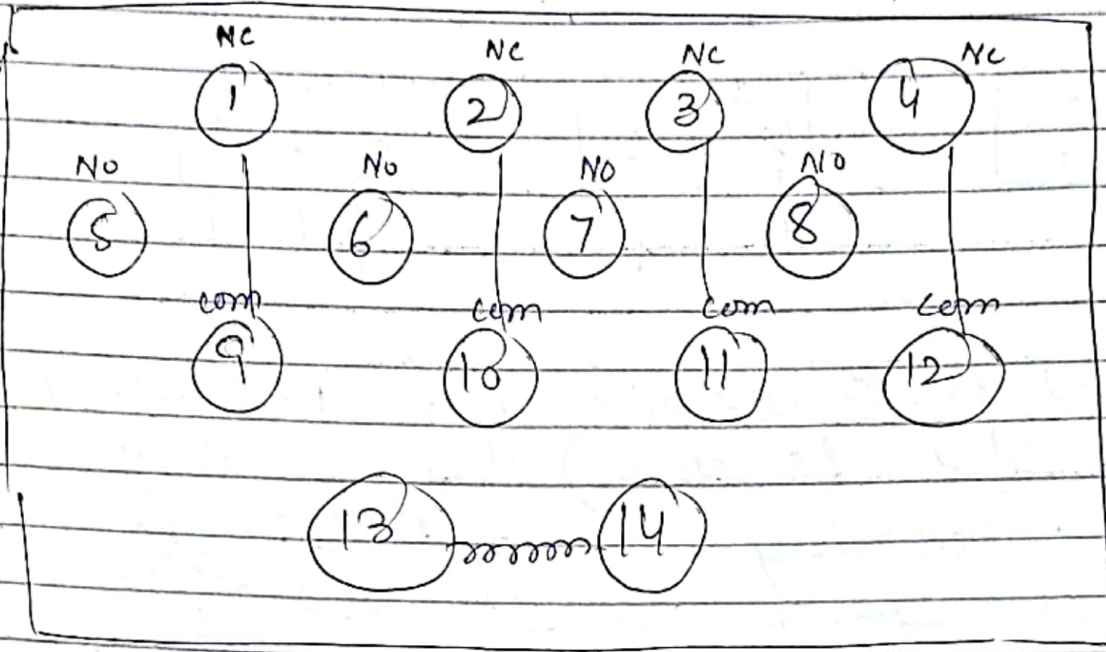 NC NC NC NC
1 2 3 4
No No NO NO
5 6 7 8
com com com com
9 10 11 12
13 14